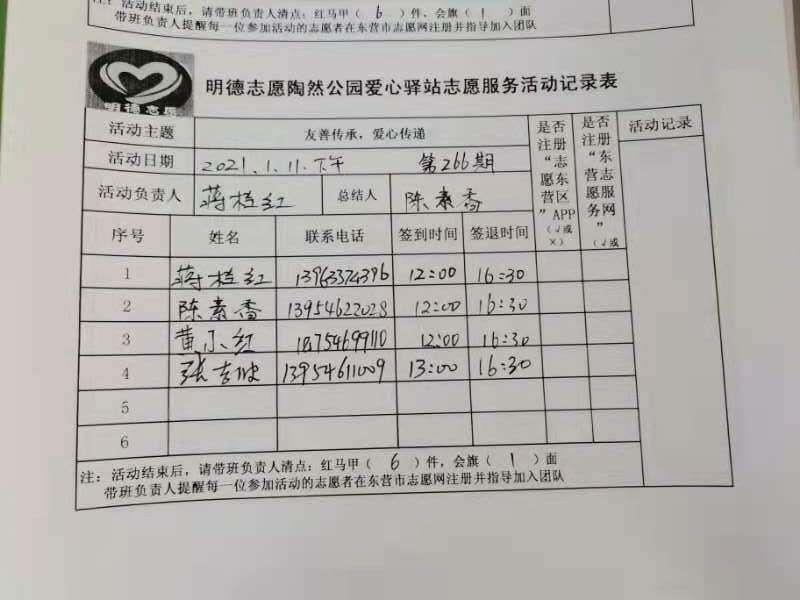 注：活动结束后，请带班负责人清点：红马甲（ 6 ）件、会旗（ 1 ）面
带班负责人提醒每一位参加活动的志愿者在东营市志愿网注册并指导加入团队
明德志愿
明德志愿陶然公园爱心驿站志愿服务活动记录表
活动主题 友善传承，爱心传递 是否注册“志愿东营区”APP（√或×） 是否注册“东营志愿服务网”（√或 活动记录
活动日期 2021.1.11.下午 第266期
活动负责人 蒋桂红 总结人 陈素香
序号 姓名 联系电话 签到时间 签退时间
1 蒋桂红 13963374396 12:00 16:30
2 陈素香 13954622028 12:00 16:30
3 黄小红 18754699110 12:00 16:30
4 张吉 13954611009 13:00 16:30
5
6
注：活动结束后，请带班负责人清点：红马甲（ 6 ）件，会旗（ 1 ）面
带班负责人提醒每一位参加活动的志愿者在东营市志愿网注册并指导加入团队